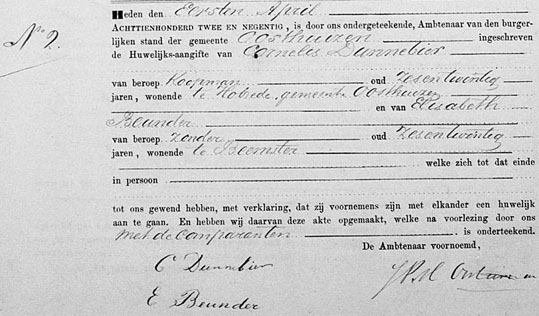 Heden den Eersten April
No 2.
ACHTTIENHONDERD TWEE EN NEGENTIG, is door ons ondergeteekende, Ambtenaar van den burger-
lijken stand der gemeente Oosthuizen ingeschreven
de Huwelijks-aangifte van Cornelis Dunnebier
van beroep Koopman oud Zesentwintig
jaren, wonende te Hobrede, gemeente Oosthuizen
en van Elisabeth
Beunder
van beroep zonder oud Zesentwintig
jaren, wonende te Beemster
welke zich tot dat einde
in persoon
tot ons gewend hebben, met verklaring, dat zij voornemens zijn met elkander een huwelijk
aan te gaan. En hebben wij daarvan deze akte opgemaakt, welke na voorlezing door ons
met de comparanten is onderteekend.
De Ambtenaar voornoemd,
C Dunnebier
E Beunder